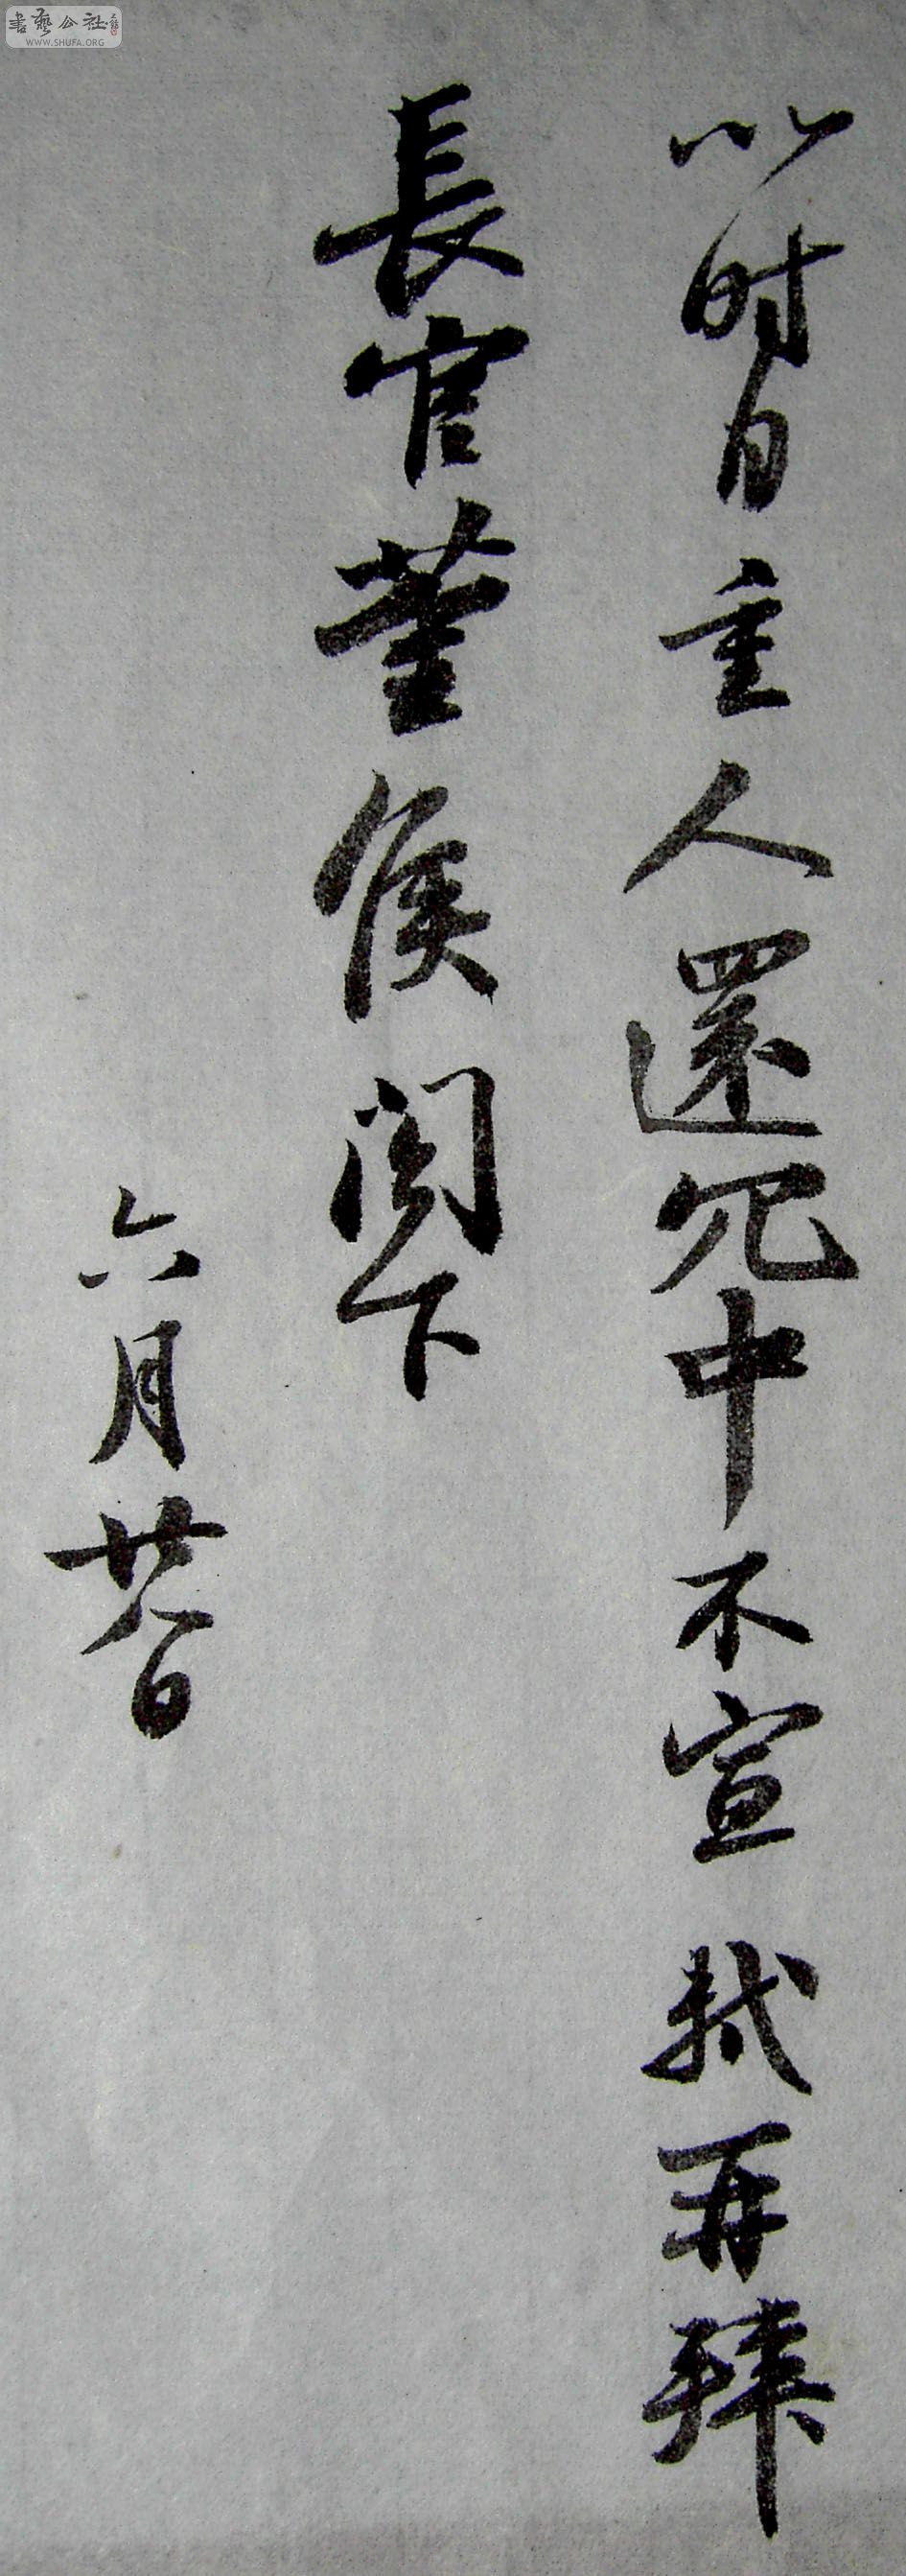 以时自重人還冗中不宣軾再拜
長官董侯閤下
六月廿八日
書藝公社
WWW.SHUFA.ORG